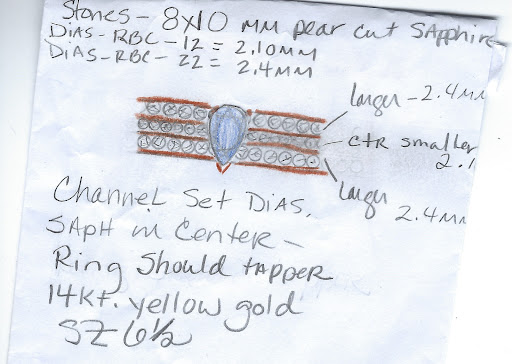 Stones - 8x10 MM pear cut SApphire
DiAs - RBC - 12 = 2.10MM
DiAs - RBC - 22 = 2.4MM
larger - 2.4MM
CtR smaller
2.1
larger
2.4MM
Channel Set DiAs.
SApH in Center -
Ring Should tApper
14Kt. yellow gold
SZ 6½